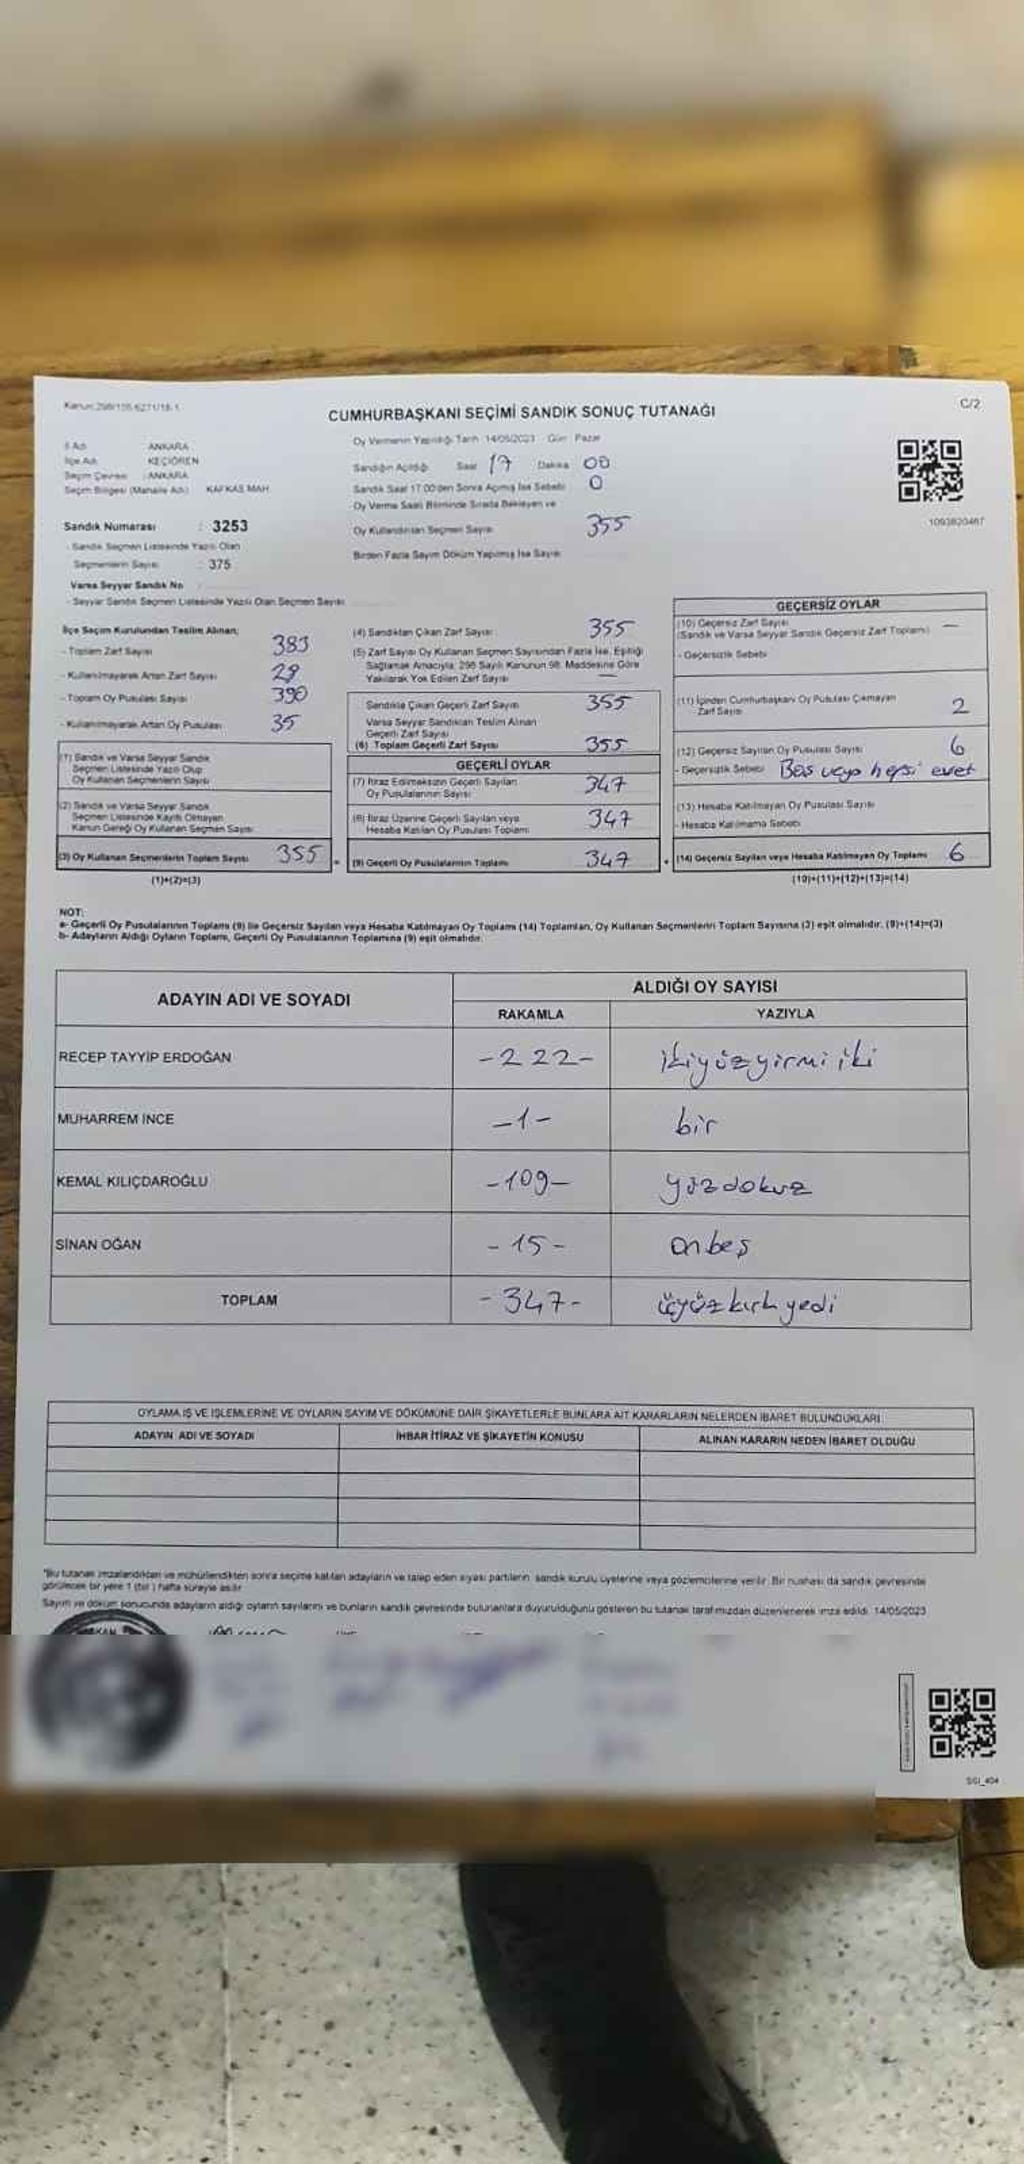 Kanun:298/105-6271/18-1
C/2
CUMHURBAŞKANI SEÇİMİ SANDIK SONUÇ TUTANAĞI
İl Adı : ANKARA
İlçe Adı : KEÇİÖREN
Seçim Çevresi : ANKARA
Seçim Bölgesi (Mahalle Adı) : KAFKAS MAH.
Sandık Numarası : 3253
- Sandık Seçmen Listesinde Yazılı Olan
Seçmenlerin Sayısı : 375
Varsa Seyyar Sandık No
- Seyyar Sandık Seçmen Listesinde Yazılı Olan Seçmen Sayısı
Oy Vermenin Yapıldığı Tarih 14/05/2023 Gün: Pazar
Sandığın Açıldığı Saat 17 Dakika 00
Sandık Saat 17.00'den Sonra Açılmış İse Sebebi 0
Oy Verme Saati Bitiminde Sırada Bekleyen ve
Oy Kullandırılan Seçmen Sayısı 355
Birden Fazla Sayım Döküm Yapılmış İse Sayısı
1093820487
İlçe Seçim Kurulundan Teslim Alınan;
- Toplam Zarf Sayısı 383
- Kullanılmayarak Artan Zarf Sayısı 28
- Toplam Oy Pusulası Sayısı 390
- Kullanılmayarak Artan Oy Pusulası 35
(1) Sandık ve Varsa Seyyar Sandık
Seçmen Listesinde Yazılı Olup
Oy Kullanan Seçmenlerin Sayısı
(2) Sandık ve Varsa Seyyar Sandık
Seçmen Listesinde Kayıtlı Olmayan
Kanun Gereği Oy Kullanan Seçmen Sayısı
(3) Oy Kullanan Seçmenlerin Toplam Sayısı 355
(1)+(2)=(3)
(4) Sandıktan Çıkan Zarf Sayısı 355
(5) Zarf Sayısı Oy Kullanan Seçmen Sayısından Fazla İse, Eşitliği
Sağlamak Amacıyla, 298 Sayılı Kanunun 98. Maddesine Göre
Yakılarak Yok Edilen Zarf Sayısı —
Sandıkta Çıkan Geçerli Zarf Sayısı 355
Varsa Seyyar Sandıktan Teslim Alınan
Geçerli Zarf Sayısı
(6) Toplam Geçerli Zarf Sayısı 355
GEÇERLİ OYLAR
(7) İtiraz Edilmeksizin Geçerli Sayılan
Oy Pusulalarının Sayısı 347
(8) İtiraz Üzerine Geçerli Sayılan veya
Hesaba Katılan Oy Pusulası Toplamı 347
(9) Geçerli Oy Pusulalarının Toplamı 347
GEÇERSİZ OYLAR
(10) Geçersiz Zarf Sayısı —
(Sandık ve Varsa Seyyar Sandık Geçersiz Zarf Toplamı)
- Geçersizlik Sebebi
(11) İçinden Cumhurbaşkanı Oy Pusulası Çıkmayan
Zarf Sayısı 2
(12) Geçersiz Sayılan Oy Pusulası Sayısı 6
- Geçersizlik Sebebi Boş veya hepsi evet
(13) Hesaba Katılmayan Oy Pusulası Sayısı
- Hesaba Katılmama Sebebi
(14) Geçersiz Sayılan veya Hesaba Katılmayan Oy Toplamı 6
(10)+(11)+(12)+(13)=(14)
NOT:
a- Geçerli Oy Pusulalarının Toplamı (9) ile Geçersiz Sayılan veya Hesaba Katılmayan Oy Toplamı (14) Toplamları, Oy Kullanan Seçmenlerin Toplam Sayısına (3) eşit olmalıdır. (9)+(14)=(3)
b- Adayların Aldığı Oyların Toplamı, Geçerli Oy Pusulalarının Toplamına (9) eşit olmalıdır.
ADAYIN ADI VE SOYADI
ALDIĞI OY SAYISI
RAKAMLA YAZIYLA
RECEP TAYYİP ERDOĞAN -222- ikiyüzyirmiiki
MUHARREM İNCE -1- bir
KEMAL KILIÇDAROĞLU -109- yüzdokuz
SİNAN OĞAN -15- onbeş
TOPLAM -347- üçyüzkırkyedi
OYLAMA İŞ VE İŞLEMLERİNE VE OYLARIN SAYIM VE DÖKÜMÜNE DAİR ŞİKAYETLERLE BUNLARA AİT KARARLARIN NELERDEN İBARET BULUNDUKLARI
ADAYIN ADI VE SOYADI İHBAR İTİRAZ VE ŞİKAYETİN KONUSU ALINAN KARARIN NEDEN İBARET OLDUĞU
*Bu tutanak imzalandıktan ve mühürlendikten sonra seçime katılan adayların ve talep eden siyasi partilerin sandık kurulu üyelerine veya gözlemcilerine verilir. Bir nüshası da sandık çevresinde
görülecek bir yere 1 (bir) hafta süreyle asılır.
Sayım ve döküm sonucunda adayların aldığı oyların sayılarını ve bunların sandık çevresinde bulunanlara duyurulduğunu gösteren bu tutanak tarafımızdan düzenlenerek imza edildi. 14/05/2023
SGI_404